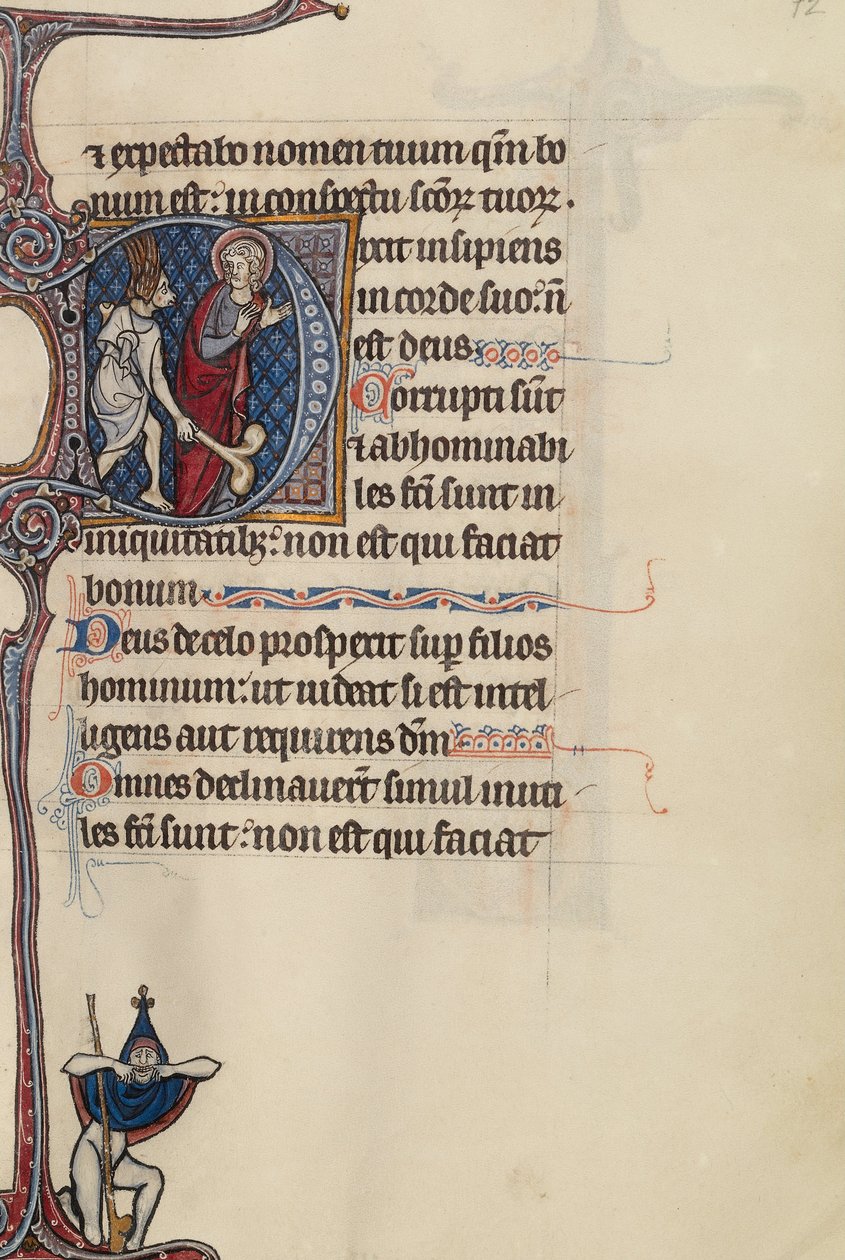 72
⁊ expectabo nomen tuum qm̄ bo
num est: in conspectu scōꝝ tuoꝝ.
Dixit insipiens
in corde suo: n̄
est deus
Corrupti sūt
⁊ abhominabi
les fc̄i sunt in
iniquitatibꝫ: non est qui faciat
bonum
Deus de celo prospexit sup̄ filios
hominum: ut uideat si est intel
ligens aut requirens dm̄
Omnes declinauer̄t simul inuti
les fc̄i sunt: non est qui faciat